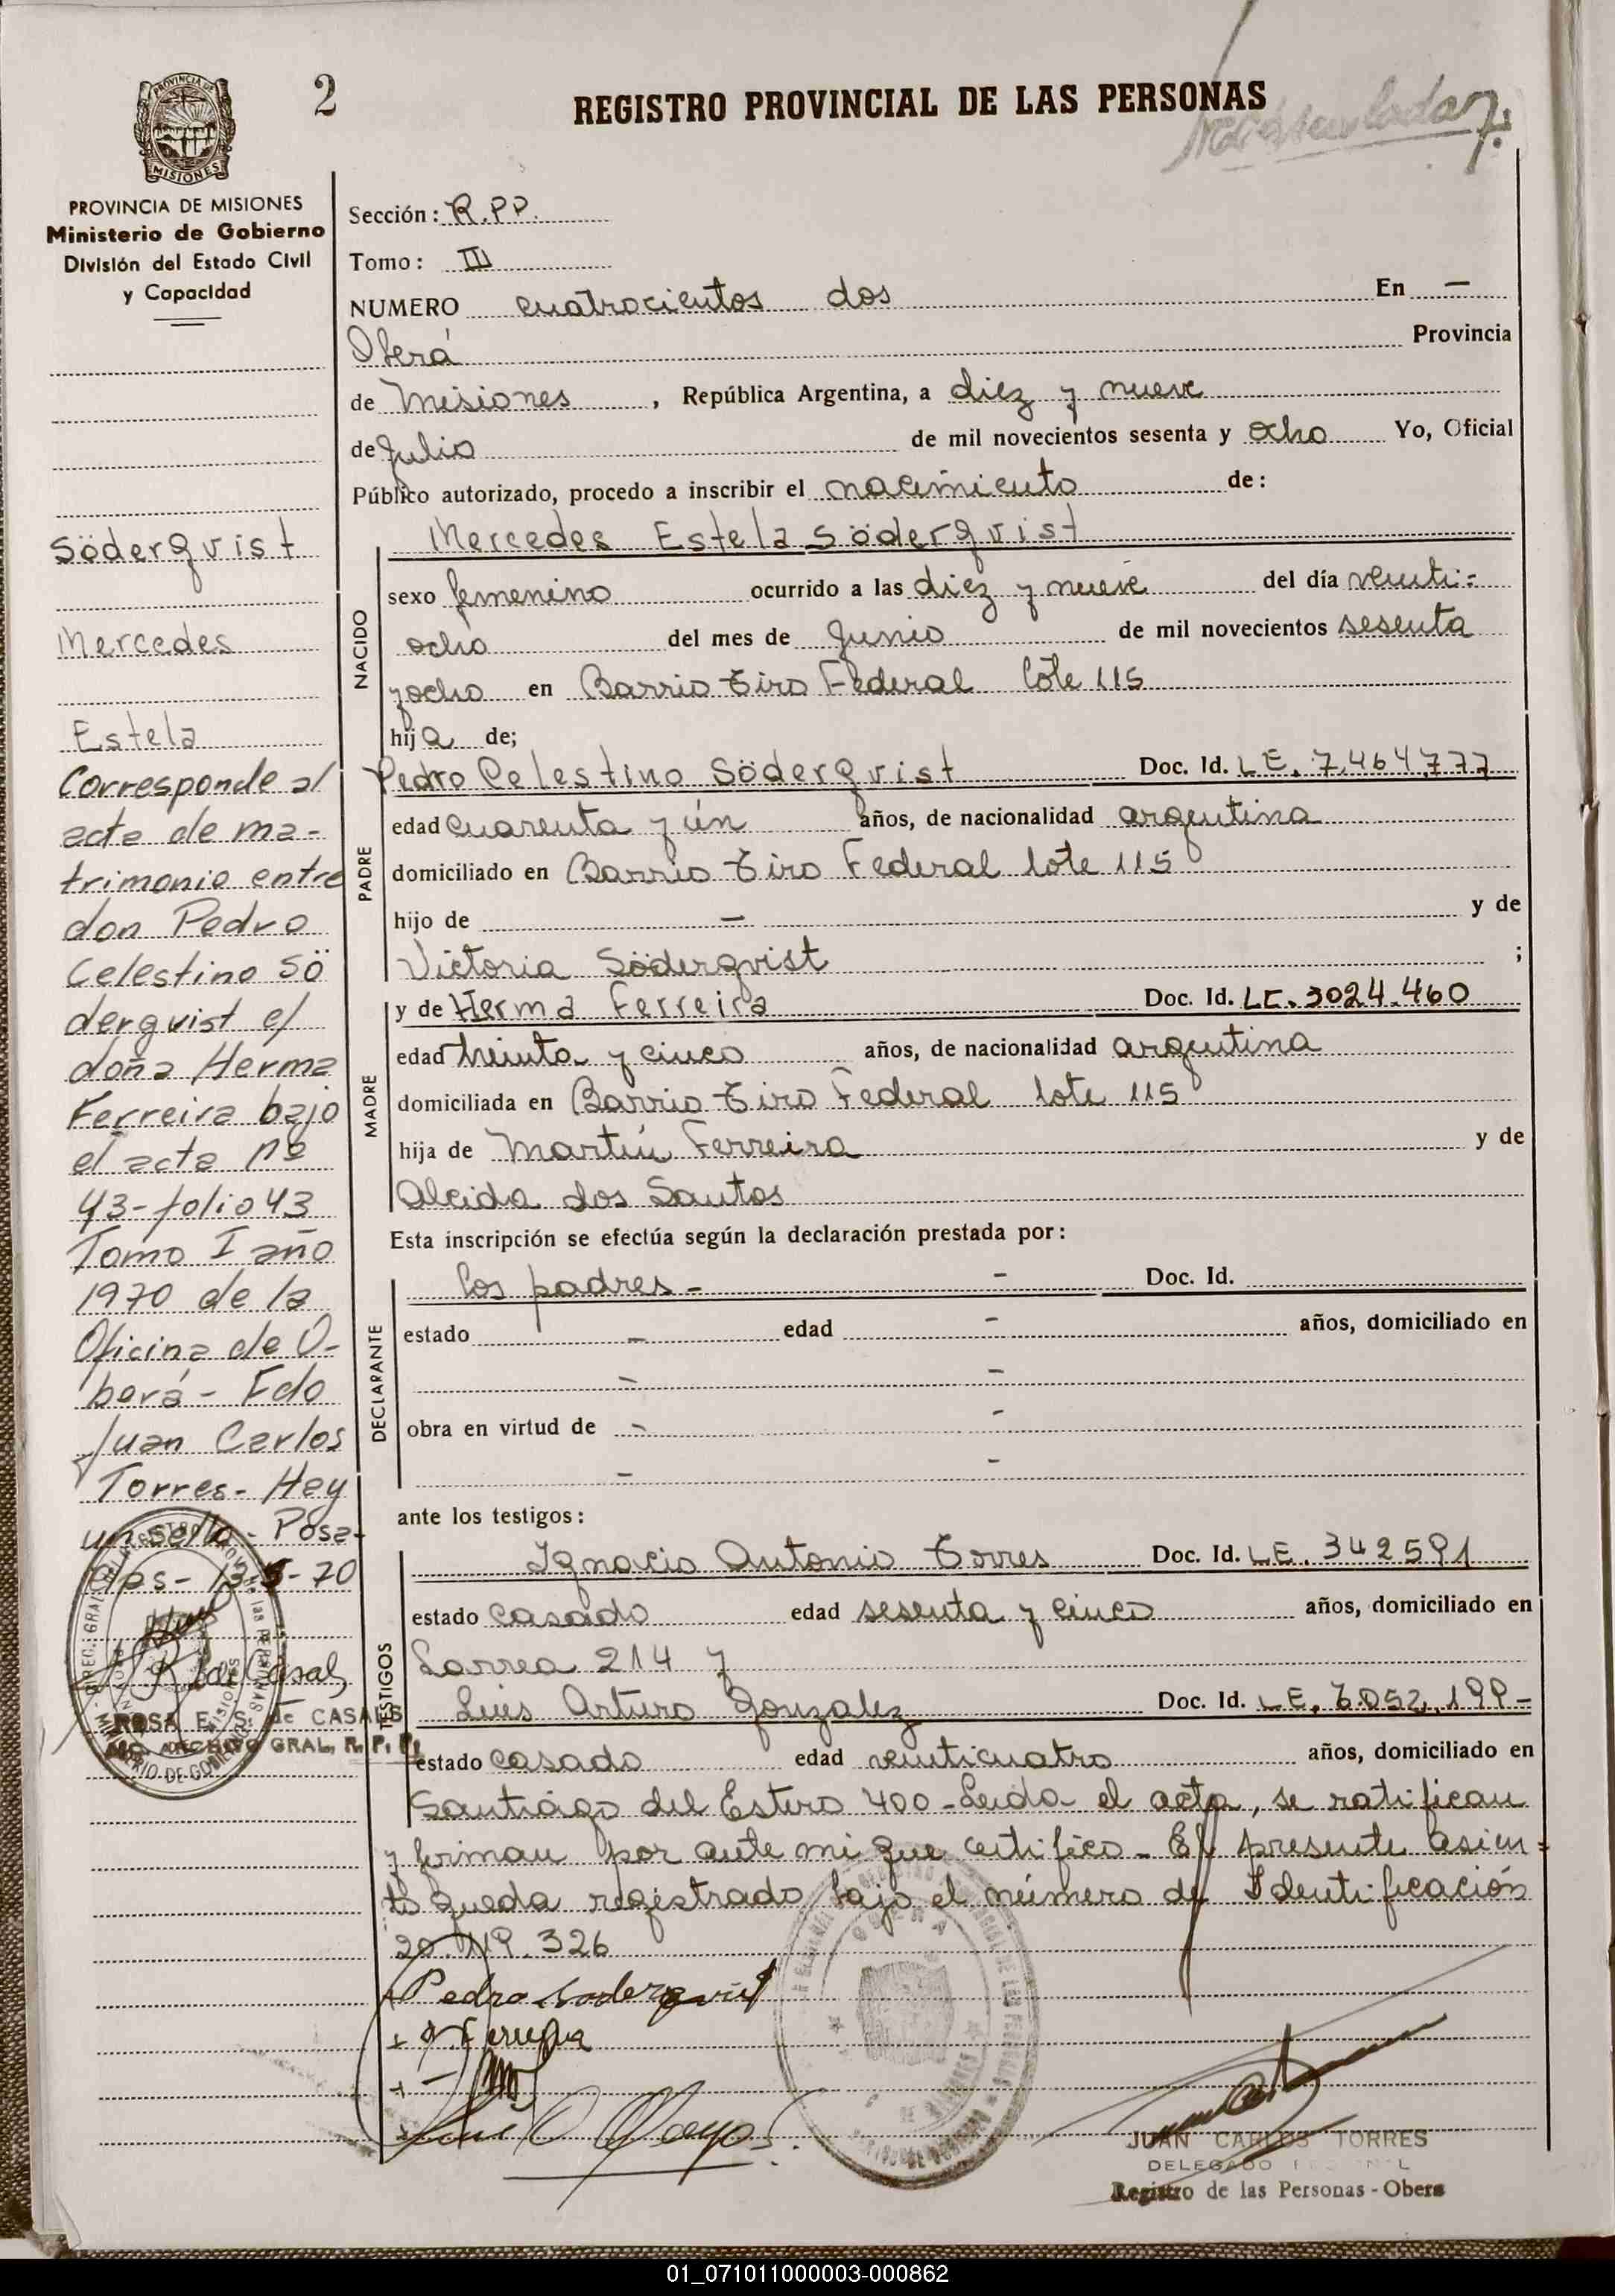 2
REGISTRO PROVINCIAL DE LAS PERSONAS
7.
PROVINCIA DE MISIONES
MISIONES
PROVINCIA DE MISIONES
Ministerio de Gobierno
División del Estado Civil
y Capacidad
Söderqvist
Mercedes
Estela
Corresponde al
acta de ma-
trimonio entre
don Pedro
Celestino Sö
derqvist e/
doña Herma
Ferreira bajo
el acta nº
43-folio 43
Tomo I año
1970 de la
Oficina de O-
berá - Fdo
Juan Carlos
Torres - Hay
un sello - Posa-
das - 13-5-70
ROSA E. S. de CASALS
ARCHIVO GRAL. R. P. P.
Sección: R.P.P.
Tomo: III
NUMERO cuatrocientos dos En —
Oberá Provincia
de Misiones, República Argentina, a diez y nueve
de Julio de mil novecientos sesenta y ocho Yo, Oficial
Público autorizado, procedo a inscribir el nacimiento de:
NACIDO
Mercedes Estela Söderqvist
sexo femenino ocurrido a las diez y nueve del día veinti-
ocho del mes de Junio de mil novecientos sesenta
y ocho en Barrio Tiro Federal lote 115
hija de;
PADRE
Pedro Celestino Söderqvist Doc. Id. L.E. 7.464.777
edad cuarenta y ún años, de nacionalidad argentina
domiciliado en Barrio Tiro Federal lote 115
hijo de — y de
Victoria Söderqvist ;
MADRE
y de Herma Ferreira Doc. Id. L.C. 3024.460
edad treinta y cinco años, de nacionalidad argentina
domiciliada en Barrio Tiro Federal lote 115
hija de Martín Ferreira y de
Alcida dos Santos
Esta inscripción se efectúa según la declaración prestada por:
DECLARANTE
los padres - — Doc. Id.
estado — edad — años, domiciliado en
— —
obra en virtud de — —
— —
ante los testigos:
TESTIGOS
Ignacio Antonio Torres Doc. Id. L.E. 342591
estado casado edad sesenta y cinco años, domiciliado en
Larrea 214 y
Luis Arturo Gonzalez Doc. Id. L.E. 6.052.199-
estado casado edad veinticuatro años, domiciliado en
Santiago del Estero 400 - Leida el acta, se ratifican
y firman por ante mi que certifico - El presente asien-
to queda registrado bajo el número de Identificación
20.119.326
Pedro Soderqvist
JUAN CARLOS TORRES
DELEGADO
Registro de las Personas - Obera
01_071011000003-000862